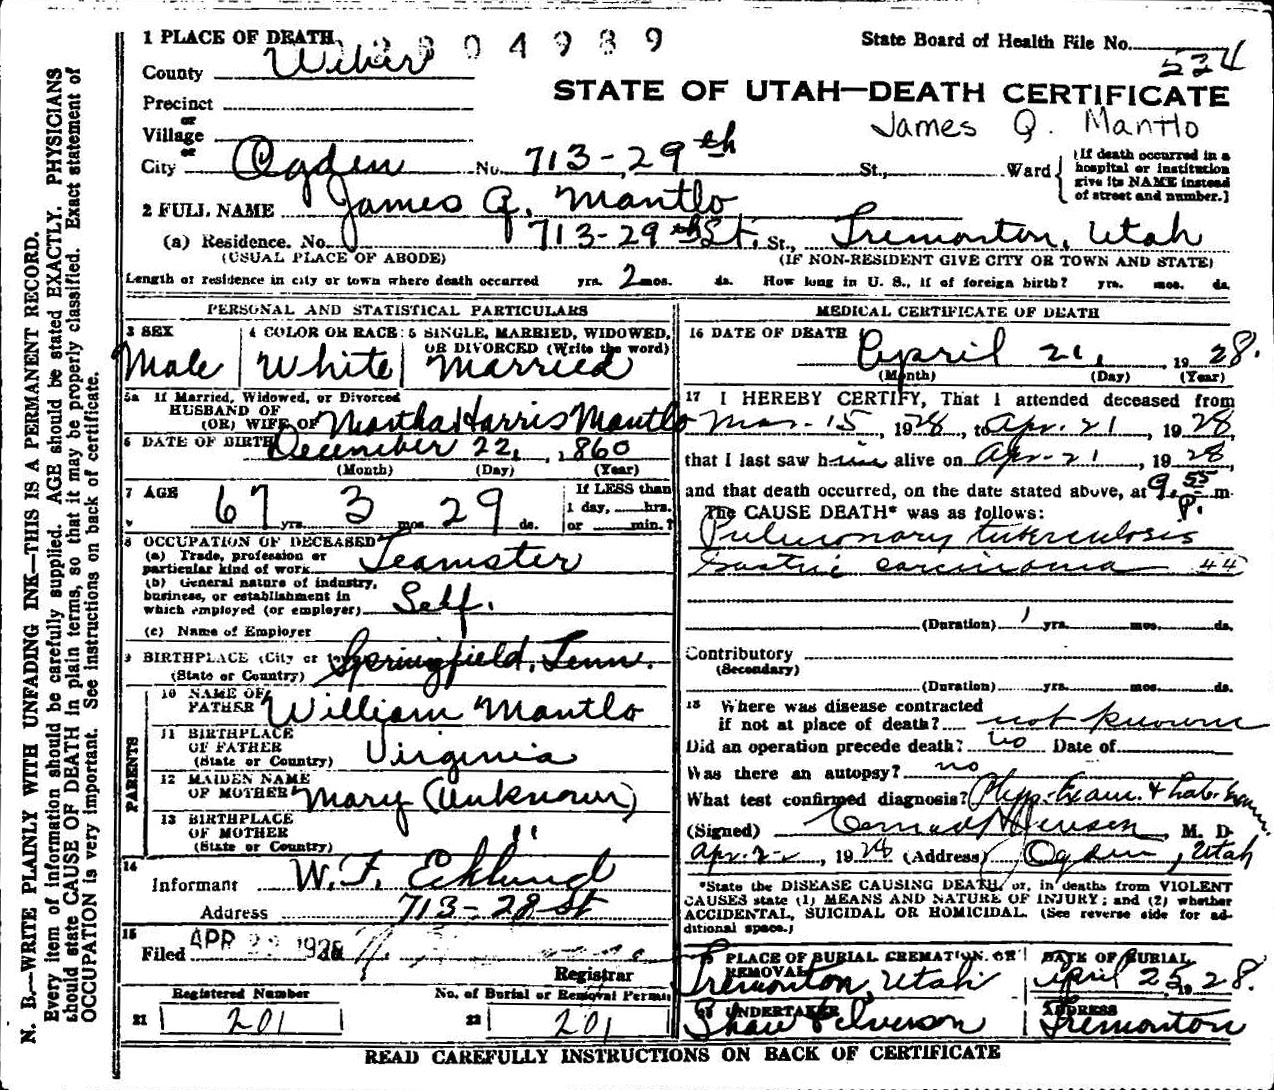 N. B.—WRITE PLAINLY WITH UNFADING INK—THIS IS A PERMANENT RECORD.
Every item of information should be carefully supplied. AGE should be stated EXACTLY. PHYSICIANS
should state CAUSE OF DEATH in plain terms, so that it may be properly classified. Exact statement of
OCCUPATION is very important. See instructions on back of certificate.
1 PLACE OF DEATH
04989
State Board of Health File No. 534
County Weber
STATE OF UTAH—DEATH CERTIFICATE
Precinct
or
Village
James Q. Mantlo
or
City Ogden No. 713-29th St., Ward
(If death occurred in a
hospital or institution
give its NAME instead
of street and number.]
2 FULL NAME James Q. Mantlo
(a) Residence. No. 713-29th St. St., Tremonton, Utah
(USUAL PLACE OF ABODE) (IF NON-RESIDENT GIVE CITY OR TOWN AND STATE)
Length of residence in city or town where death occurred yrs. 2 mos. ds. How long in U. S., if of foreign birth? yrs. mos. ds.
PERSONAL AND STATISTICAL PARTICULARS
3 SEX
Male
4 COLOR OR RACE
White
5 SINGLE, MARRIED, WIDOWED,
OR DIVORCED (Write the word)
Married
5a If Married, Widowed, or Divorced
HUSBAND OF
(OR) WIFE OF Martha Harris Mantlo
6 DATE OF BIRTH December 22, 1860
(Month) (Day) (Year)
7 AGE
67 yrs. 3 mos. 29 ds.
If LESS than
1 day, hrs.
or min.?
8 OCCUPATION OF DECEASED
(a) Trade, profession or
particular kind of work Teamster
(b) General nature of industry,
business, or establishment in
which employed (or employer) Self.
(c) Name of Employer
9 BIRTHPLACE (City or Springfield, Tenn.
(State or Country)
PARENTS
10 NAME OF
FATHER William Mantlo
11 BIRTHPLACE
OF FATHER
(State or Country) Virginia
12 MAIDEN NAME
OF MOTHER Mary (Unknown)
13 BIRTHPLACE
OF MOTHER "
(State or Country)
14
Informant W. F. Ecklund
Address 713-28 St
15
Filed APR 1928
Registrar
Registered Number No. of Burial or Removal Permit
21 201 22 201
MEDICAL CERTIFICATE OF DEATH
16 DATE OF DEATH April 21, 1928.
(Month) (Day) (Year)
17 I HEREBY CERTIFY, That I attended deceased from
Mar. 15, 1928, to Apr. 21, 1928,
that I last saw him alive on Apr. 21, 1928,
and that death occurred, on the date stated above, at 9.55 P. m.
The CAUSE DEATH* was as follows:
Pulmonary tuberculosis
Gastric carcinoma 44
(Duration) 1 yrs. mos. ds.
Contributory
(Secondary)
(Duration) yrs. mos. ds.
18 Where was disease contracted
if not at place of death? not known
Did an operation precede death? no Date of
Was there an autopsy? no
What test confirmed diagnosis? Phys. Exam. & Labr. Exam.
(Signed) Jensen, M. D.
Apr. 22, 1928 (Address) Ogden, Utah
*State the DISEASE CAUSING DEATH, or, in deaths from VIOLENT
CAUSES state (1) MEANS AND NATURE OF INJURY; and (2) whether
ACCIDENTAL, SUICIDAL OR HOMICIDAL. (See reverse side for ad-
ditional space.)
PLACE OF BURIAL CREMATION, OR
REMOVAL
Tremonton, Utah
DATE OF BURIAL
April 25, 1928.
UNDERTAKER
Shaw & Iverson
ADDRESS
Tremonton
READ CAREFULLY INSTRUCTIONS ON BACK OF CERTIFICATE